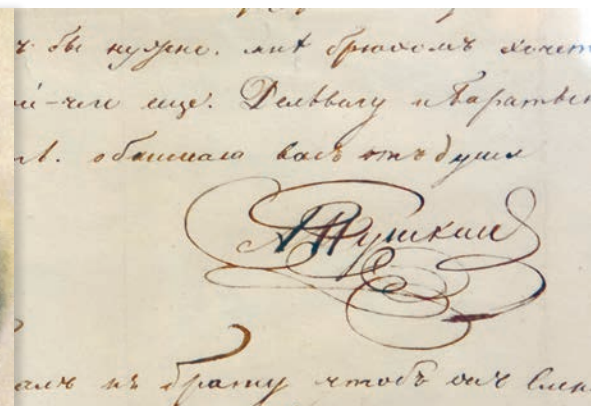 бы нужно. мнѣ брюхомъ хочет
еще. Дельвигу и Баратын
обнимаю васъ отъ души
АПушкин
къ брату чтобъ онъ